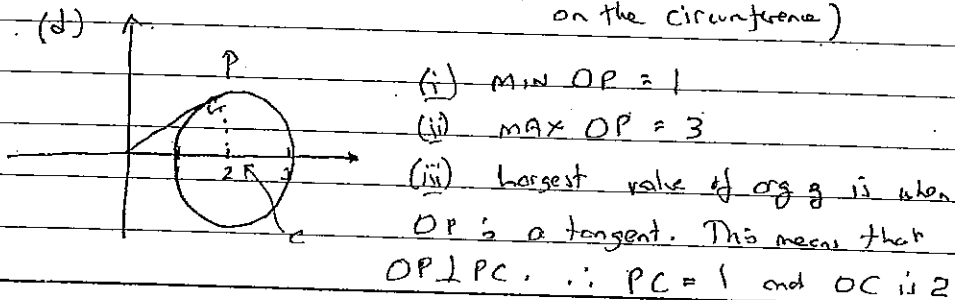 on the circumference)
(d)
P
(i) MIN OP = 1
(ii) MAX OP = 3
2 3
(iii) Largest value of arg z is when
c
OP is a tangent. This means that
OP ⊥ PC. ∴ PC = 1 and OC is 2